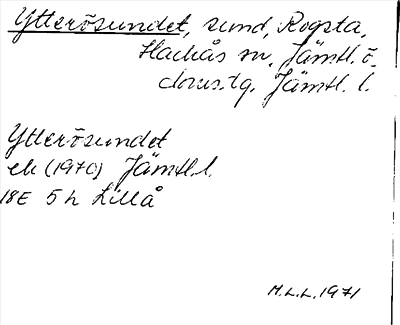 Ytterösundet, sund, Rogsta,
Hackås sn, Jämtl. ö.
doms.tg. Jämtl. l.
Ytterösundet
ek (1970) Jämtl.l.
18E 5h Lillå
M.L.L. 1971